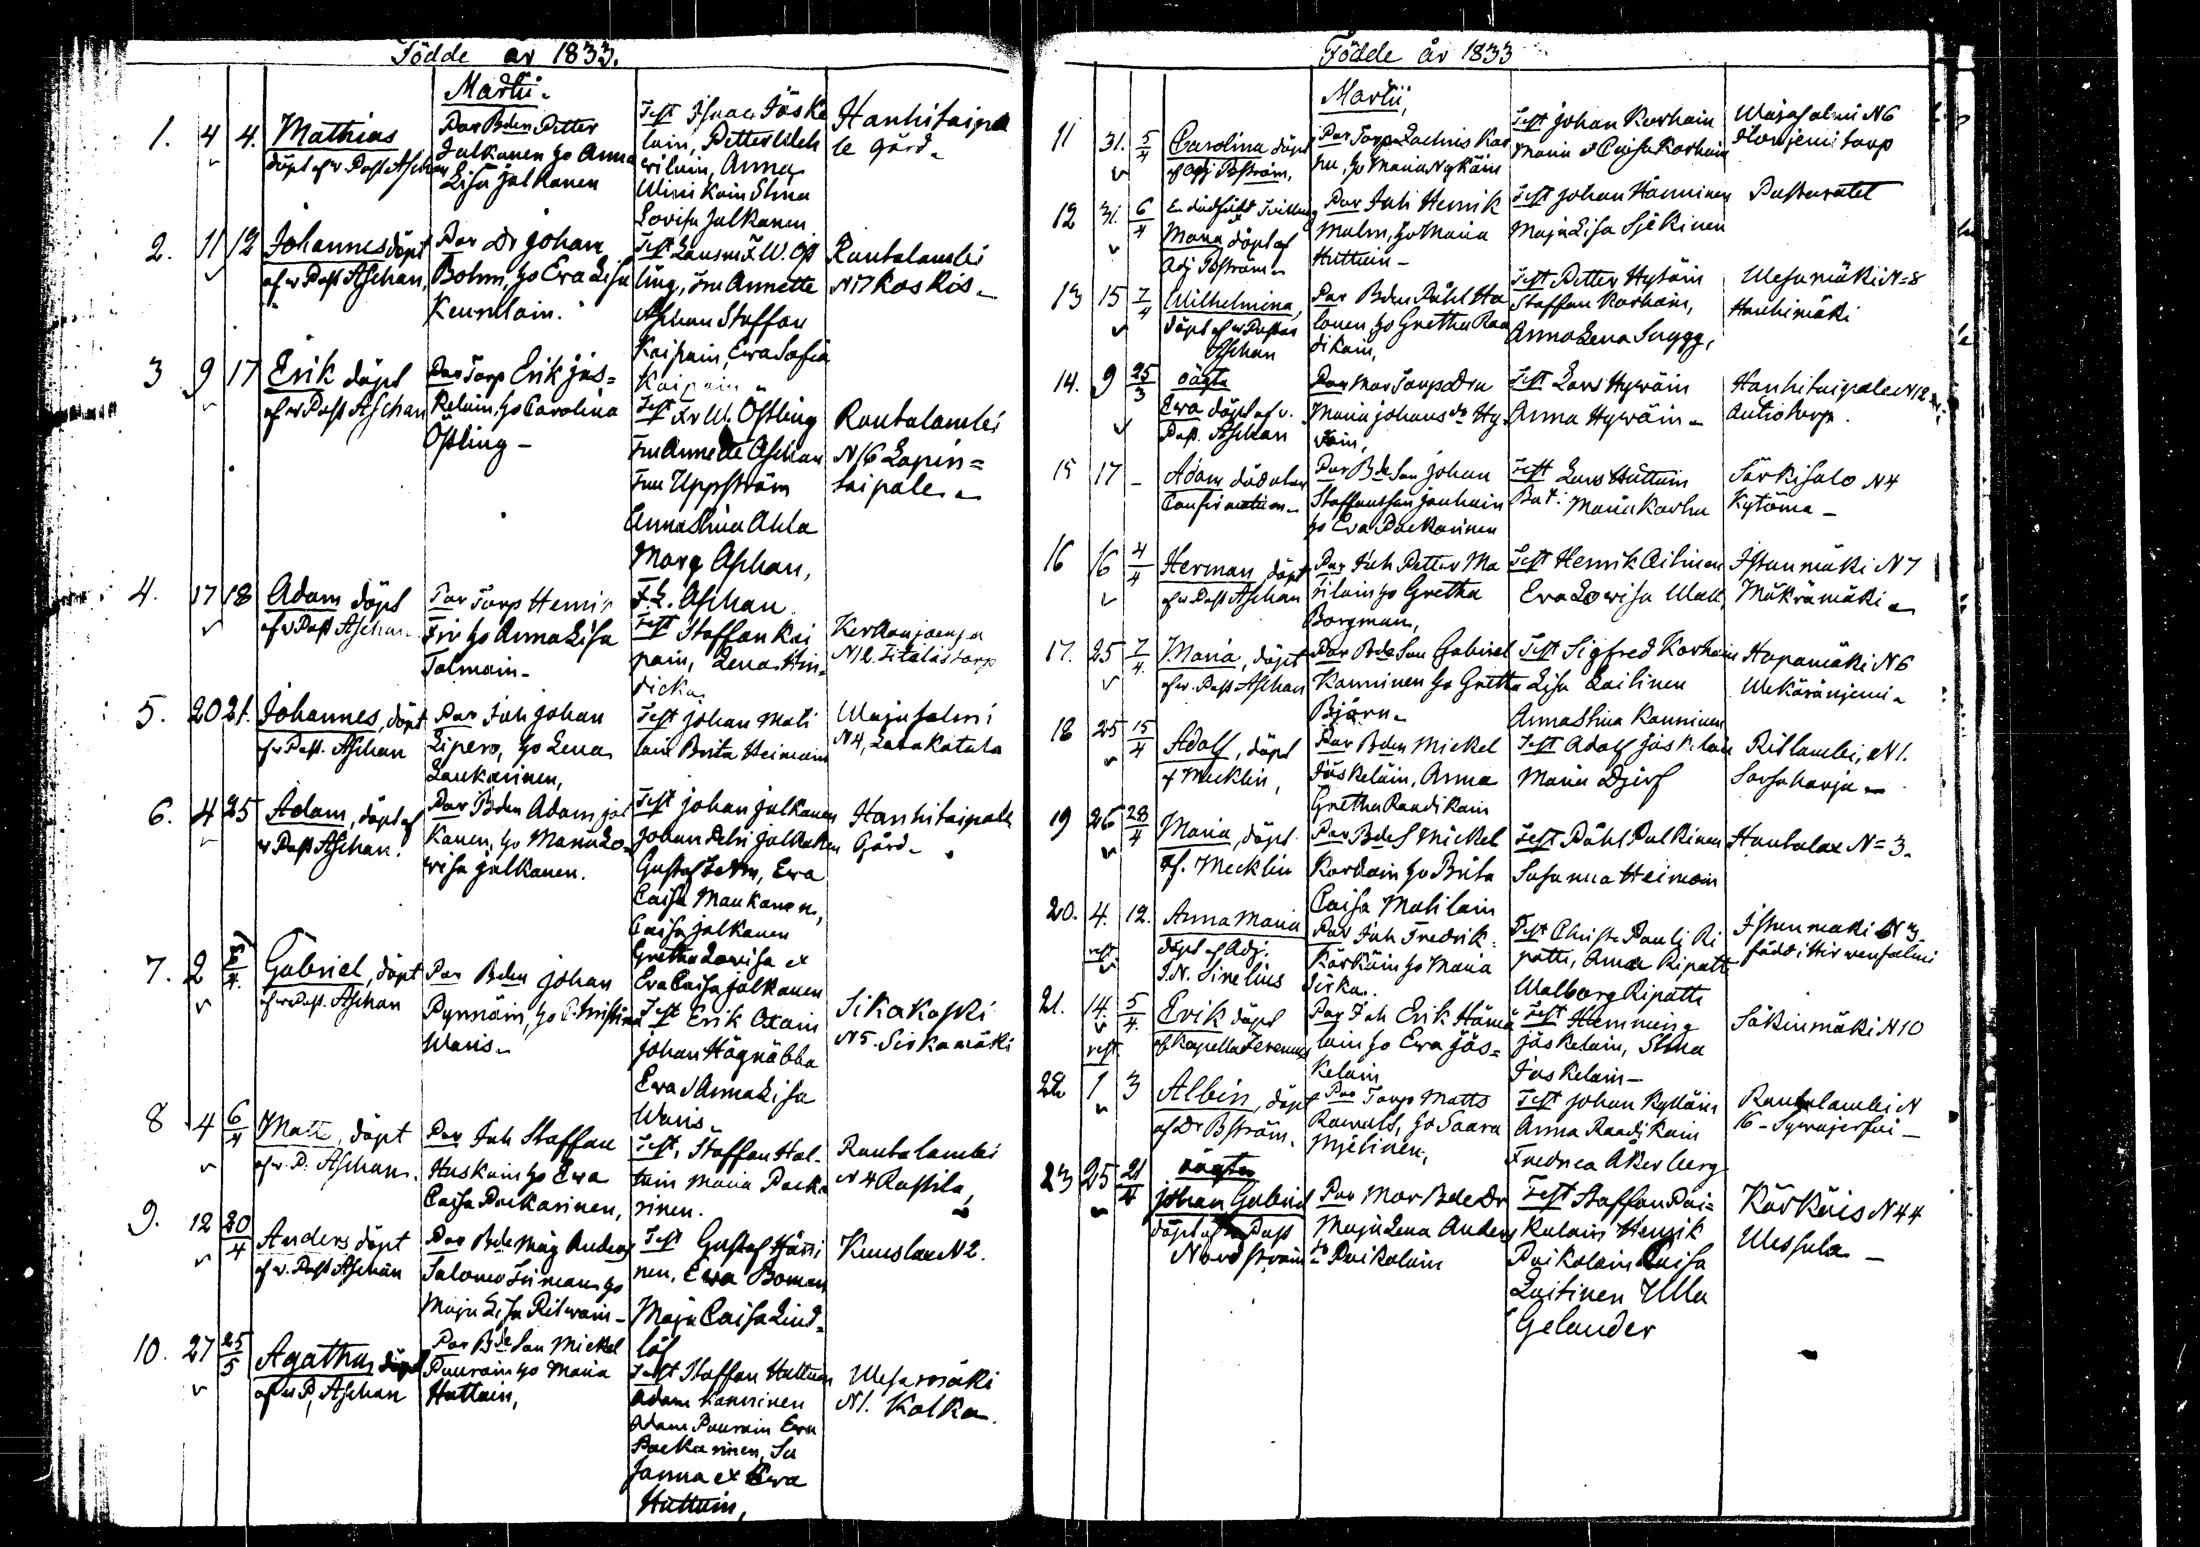 Födde år 1833.
Martii.
1. 4 4. Mathias
döpt af v Past Aschan
Par Bden Petter
Jalkanen ho Anna
Lisa Jalkanen
Test Isaac Jäske
lain, Petter
Anna
Stina
Lovisa Jalkanen
Hanhitaipa
le Gård
2. 11 12 Johannes döpt
af v Past Aschan,
Par Dr Johan
Bohm, ho Eva Lisa
Test Länsm F. W. Öst
ling, Fru Annette
Aschan Staffan
Kaipain, Eva Sofia
Kaipain
Rautalambi
N17 Koskis
3 9 17 Erik döpt
af v Past Aschan
Par Torp Erik Jäs=
kelain, ho Carolina
Östling
Test Fr W. Östling
Fru Annette Aschan
Fru Uppström
Anna Stina Ahla
Marg Aschan,
F. L. Aschan
Rautalambi
N16 Lapin=
taipale
4. 17 18 Adam döpt
af v Past Aschan
Par Torp Henrik
ho Anna Lisa
Tolmain
Test Staffan Kai
pain, Lena Hin
ricka
Kerkonjoensu
5. 20 21. Johannes, döpt
af v Past. Aschan
Par Inh Johan
Lipero, ho Lena
Laukarinen,
Test Johan Mati
lain Brita Heimain
Wajasalmi
N4,
6. 4 25 Adam, döpt af
v Past Aschan.
Par Bden Adam Jal
kanen, ho Maria Lo
visa Jalkanen.
Test Johan Jalkanen
Johan Jalkanen
Gustaf Eva
Caisa Maukonen,
Caisa Jalkanen
Gretha Lovisa et
Eva Caisa Jalkanen
Hanhitaipale
Gård
7. 2 Gabriel, döpt
af v Past. Aschan
Par Bden Johan
Pynnöin, ho Christina
Waris
Test Erik Oxain
Johan Högnäbba
Eva Anna Lisa
Waris
Sikakoski
N5. Sirkamäki
8 4 6/4 Matts, döpt
af v. P. Aschan
Par Inh Staffan
Huskain ho Eva
Caisa Paekarinen,
Test, Staffan Hal
tain Maria Paeka
rinen.
Rautalambi
N4 Rastila,
9. 12 20/4 Anders döpt
af v. Past Aschan
Par Bde Måg Anders
Salomo ho
Maja Lisa Ritvain
Test Gustaf Hänni
nen, Eva Boman
Maja Caisa Lind
löf
Kuuslax N2.
10. 27 25/5 Agatha, döpt
af v P. Aschan
Par Bde Son Mickel
Puurain ho Maria
Huttain,
Test Staffan Huttuin
Adam Kanninen
Adam Puurain Eva
Paekarinen, Su
sanna et Eva
Huttuin,
Wesamäki
N1. Kolka
Födde år 1833
Martii,
11 31. 5/4 Carolina döpt
af Adj Boström,
Par Torp Zachris Kar
hu, ho Maria Nykäin
Test Johan Korhain
Maria & Caisa Korhain
Wajasalmi N6
torp
12 31. 6/4 En dödfödd Tvilling
Maria döpt af
Adj Boström
Par Inh Henrik
Malm, ho Maria
Huttuin
Test Johan Hänninen
Maja Lisa Sjökinen
Pastoratet
13 15 7/4 Wilhelmina,
döpt af v Pastor
Aschan
Par Bden Påhl Ha
lonen, ho Gretha Raa
dikain,
Test Petter Hytöin
Staffan Korhain,
Anna Lena Snygg,
Wesamäki N=8
Hanhimäki
14. 9 25/3 oägta
Eva döpt af v.
Past. Aschan
Par Mor Torp Dra
Maria Johans dr Hy
väin,
Test Lars Hyväin
Anna Hyväin
Hanhitaipale N12
Autio torp.
15 17 - Adam död utan
Confirmation
Par Bde Son Johan
Staffansson Janhain
ho Eva Paekarinen
Test Lars Huttuin
Maria Karhu
Särkisalo N4
Kytömä
16 16 4/4 Herman, döpt
af v Past Aschan
Par Inh Petter Ma
tilain ho Gretha
Borgman,
Test Henrik Oilinen
Eva Lovisa Wall,
Istunmäki N7
Mäkrämäki
17. 25 7/4 Maria, döpt
af v. Past Aschan
Par Bde Son Gabriel
Kanninen ho Gretha
Björn
Test Sigfred Korhain
Lisa Laitinen
Anna Stina Kanninen
Hapamäki N6
Wekäräniemi
18 25 15/4 Adolf, döpt
af Mecklin,
Par Bden Mickel
Jäskeläin, Anna
Gretha Raadikain
Test Adolf Jäskelain
Maria Dzirf
Ritlambi, N1.
Sarsaharja
19 26 28/4 Maria, döpt
af. Mecklin
Par Bde S Mickel
Korhain ho Brita
Caisa Matilain
Test Påhl Pulkinen
Susanna Heimain
Hautalax N=3.
20. 4. 12. Anna Maria
döpt af Adj.
J. N. Sirelius
Par Inh Fredrik
Kärkäin ho Maria
Sirka.
Test Christ. Pauli Ri
patti, Anna Ripatti
Walborg Ripatti
Istunmäki N3
född i Hirvensalmi
21. 14. 5/4 Erik döpt
af Kapellan
Par Inh Erik Hämä
lain ho Eva Jäs=
kelain
Test Hemming
Jäskelain, Stina
Jäskelain
Säkinmäki N10
22 1 3 Albin, döpt
af Dr Bström.
Par Torp Matts
ho Saara
Mjelinen,
Test Johan Kylläin
Anna Raadikain
Fredrica Åkerberg
Rautalambi N
16
23 25 21/4 oägta
Johan Gabriel
döpt af Past
Nordström
Par Mor Bde Dr
Maja Lena Anders
dr Paikolain
Test Staffan Pai=
kolain Henrik
Paikolain Caisa
Laitinen Ulla
Gelander
Kärkäis N44
Wessula